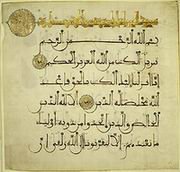 بسم الله الرحمن الرحيم
تنزيل الكتب من الله العزيز الحكيم
انا انزلنا اليك الكتب بالحق فاعبد
الله مخلصا له الدين الا لله الدين
الخالص والذين اتخذوا من دونه اوليا
ما نعبدهم الا ليقربونا الى الله